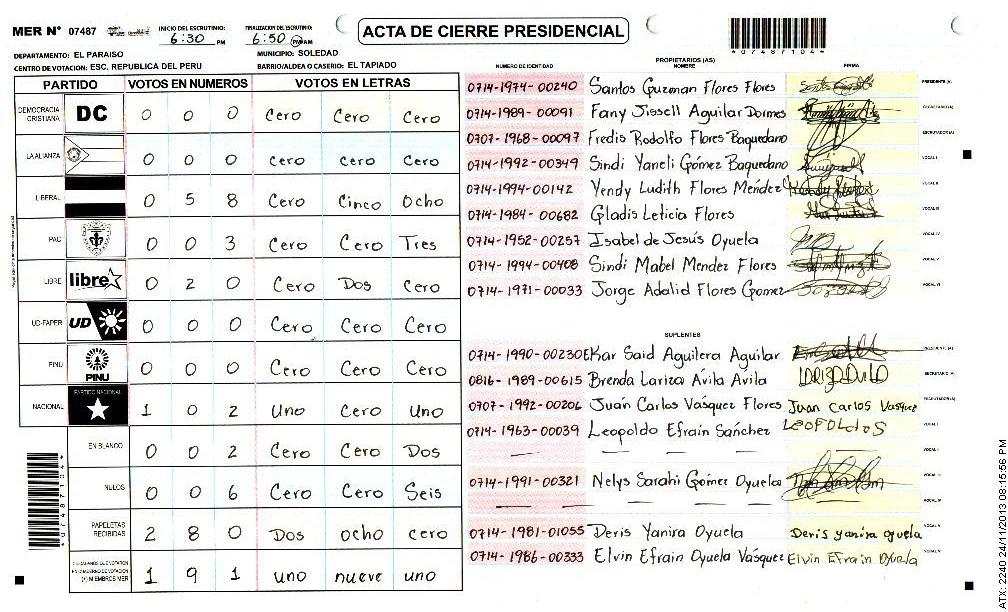 MER N° 07487 INICIO DEL ESCRUTINIO: 6:30 PM FINALIZACION DEL ESCRUTINIO: 6:50 PM/AM ACTA DE CIERRE PRESIDENCIAL
*074871044*
DEPARTAMENTO: EL PARAISO MUNICIPIO: SOLEDAD
CENTRO DE VOTACION: ESC. REPUBLICA DEL PERU BARRIO/ALDEA O CASERIO: EL TAPIADO
PARTIDO VOTOS EN NUMEROS VOTOS EN LETRAS
DEMOCRACIA CRISTIANA DC 0 0 0 Cero Cero Cero
LA ALIANZA 0 0 0 Cero Cero Cero
LIBERAL 0 5 8 Cero Cinco Ocho
PAC 0 0 3 Cero Cero Tres
LIBRE libre 0 2 0 Cero Dos Cero
UD-FAPER UD 0 0 0 Cero Cero Cero
PINU PINU 0 0 0 Cero Cero Cero
NACIONAL PARTIDO NACIONAL 1 0 2 Uno Cero Uno
EN BLANCO 0 0 2 Cero Cero Dos
NULOS 0 0 6 Cero Cero Seis
PAPELETAS RECIBIDAS 2 8 0 Dos ocho cero
CIUDADANOS QUE VOTARON EN CUADERNO DE VOTACION (+) MIEMBROS MER 1 9 1 uno nueve uno
*074871044*
PROPIETARIOS (AS)
NUMERO DE IDENTIDAD NOMBRE FIRMA
0714-1974-00240 Santos Guzman Flores Flores PRESIDENTE (A)
0714-1989-00091 Fany Jissell Aguilar Dormes SECRETARIO (A)
0707-1968-00097 Fredis Rodolfo Flores Baquedano ESCRUTADOR (A)
0714-1992-00349 Sindi Yaneli Gómez Baquedano VOCAL I
0714-1994-00142 Yendy Ludith Flores Mendez VOCAL II
0714-1984-00682 Gladis Leticia Flores VOCAL III
0714-1952-00257 Isabel de Jesús Oyuela VOCAL IV
0714-1994-00408 Sindi Mabel Mendez Flores VOCAL V
0714-1971-00033 Jorge Adalid Flores Gomez VOCAL VI
SUPLENTES
0714-1990-00230 Ekar Said Aguilera Aguilar PRESIDENTE (A)
0816-1989-00615 Brenda Lariza Avila Avila SECRETARIO (A)
0707-1992-00206 Juán Carlos Vasquez Flores Juan Carlos Vasquez ESCRUTADOR (A)
0714-1963-00039 Leopoldo Efraín Sánchez VOCAL I
VOCAL II
0714-1991-00321 Nelys Sarahi Gómez Oyuela VOCAL III
VOCAL IV
0714-1981-01055 Deris Yanira Oyuela Deris yanira oyuela VOCAL V
0714-1986-00333 Elvin Efrain Oyuela Vasquez Elvin Efrain Oyuela VOCAL VI
ATX: 2240 24/11/2013 08:15:56 PM